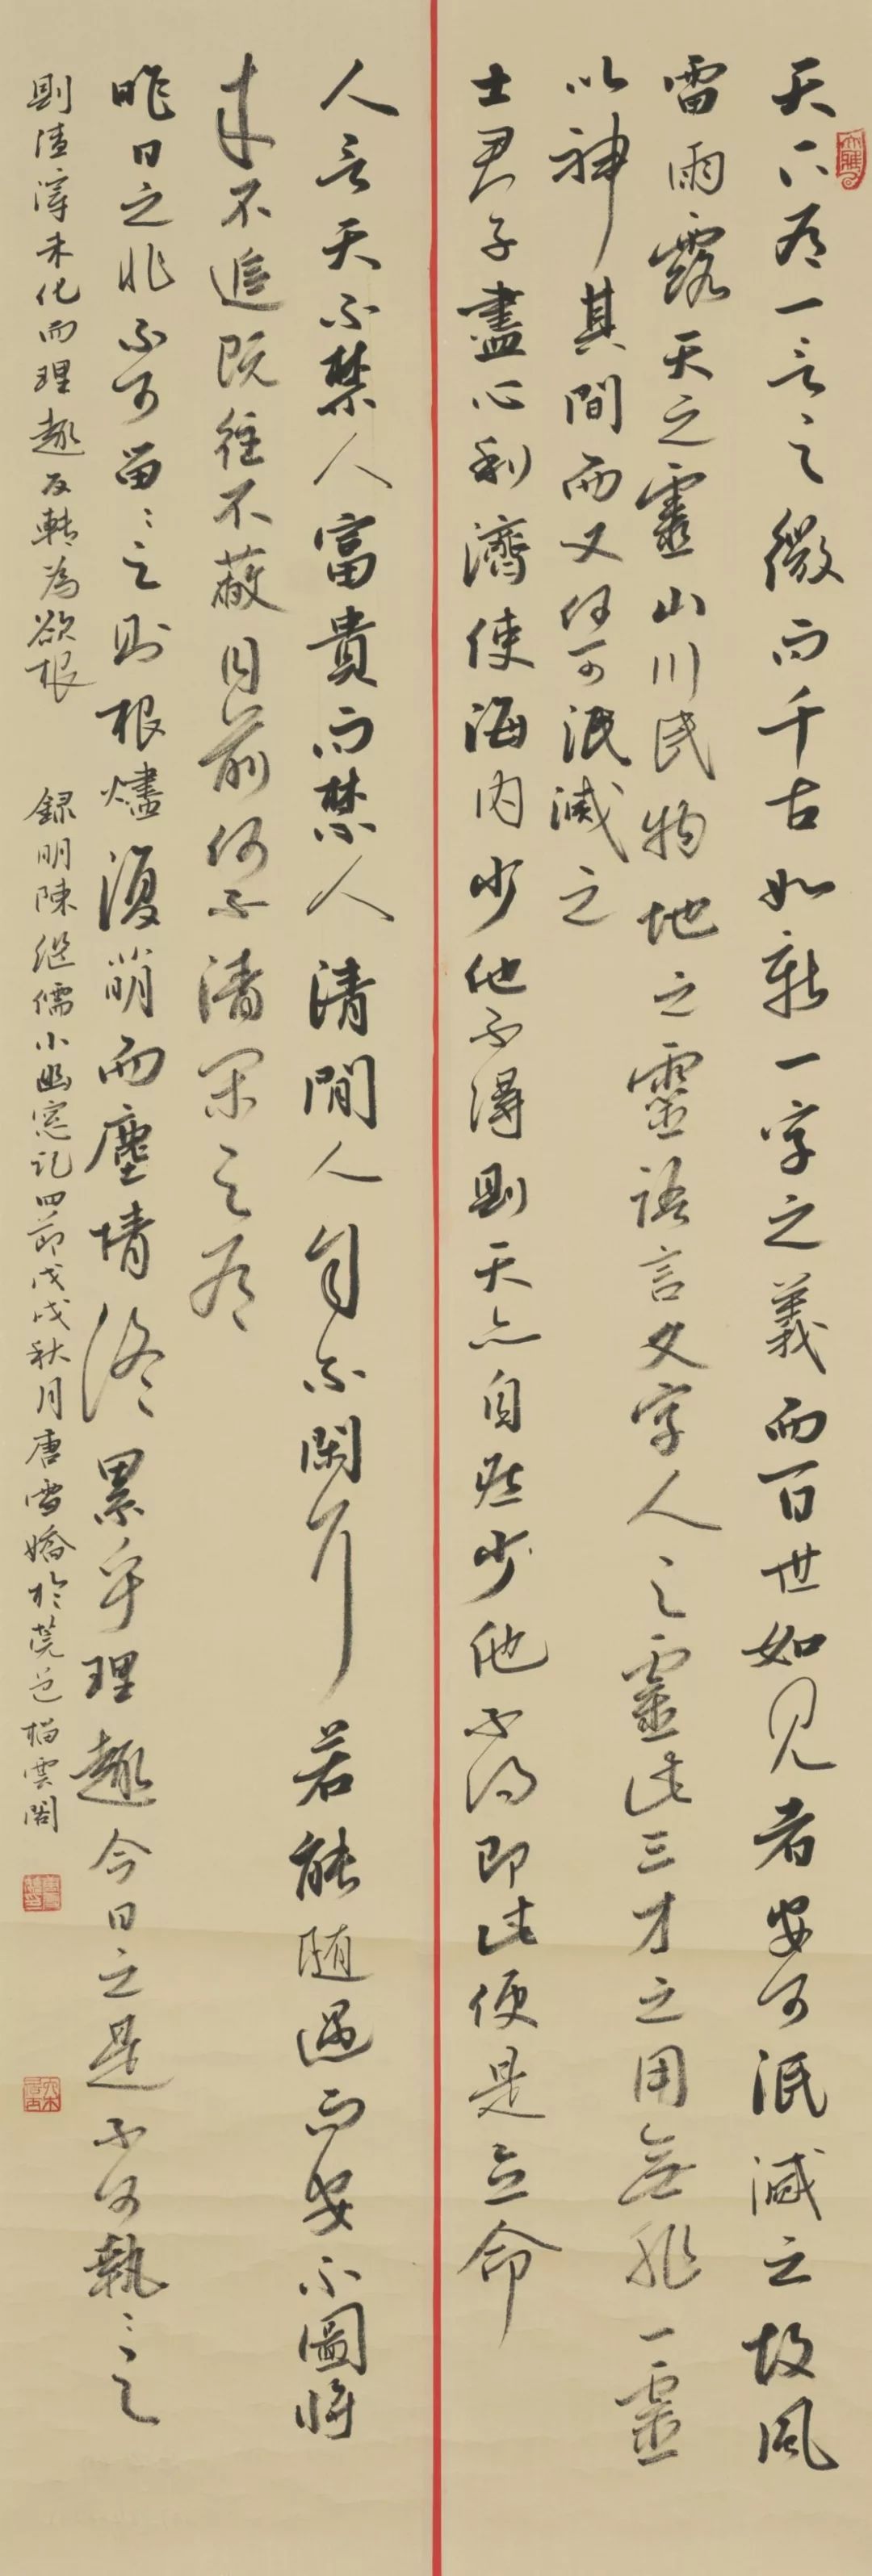 天下有一言之微而千古如新一字之義而百世如見者安可泯滅之故風
雷雨露天之靈山川民物地之靈語言文字人之靈此三才之用無非一靈
以神其間而又何可泯滅之
士君子盡心利濟使海内少他不得則天亦自然少他不得即此便是立命
人言天不禁人富貴而禁人清閒人自不閑耳若能随遇而安不圖將
來不追既往不蔽目前何不清閑之有
昨日之非不可留留之則根燼復萌而塵情終累乎理趣今日之是不可執執之
則渣滓未化而理趣反轉為欲根
録明陳繼儒小幽窓記四節戊戌秋月唐雪嬌於莞邑栖雲閣